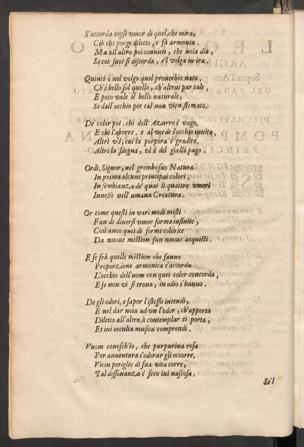 S'accorda cogli vmor di quel, che mira,
Ciò che porge diletto, e fà armonia.
Ma all'altro poi conuien, che noia dia,
Se coi suoi si discorda, e'l volga in ira.
Quinci è nel volgo quel prouerbio nato,
Ch'è bello sol quello, ch'altrui par tale,
E poco vale il bello naturale,
Se dall'occhio per tal non vien stimato.
De' color poi, chi dell'Azurro è vago,
E chi l'aborre, e al verde l'occhio inuita,
Altri v'è, cui la porpora è gradita,
Altri la sdegna, ed è del giallo pago.
Ordì, Signor, nel grembo suo Natura
In prima alcuni principai colori,
In sembianza de' quai li quattro vmori
Intessè nell'umana Creatura.
Or come questi in vari modi misti
Fan di diuersi vmor forme infinite,
Così anco quei di forme colorite
Da nuoue mistion fan nuoui acquisti.
E se frà quelle mistion che fanno
Proporzione armonica s'accorda
L'occhio dell'uom con quei color concorda,
E se non vi si troua, in odio s'hanno.
De gli odori, e sapor l'istesso intendi,
E nel dar noia ad vn l'odor, ch'apporta
Diletto all'altro, à contemplar ti porta,
Et ini occulta musica comprendi.
Vuom conosch'io, che purpurina rosa
Per auuentura s'odorar gli occorre,
Vicin periglio di sua vita corre,
Tal dissonanza è seco iui nascosa.
Sè'l